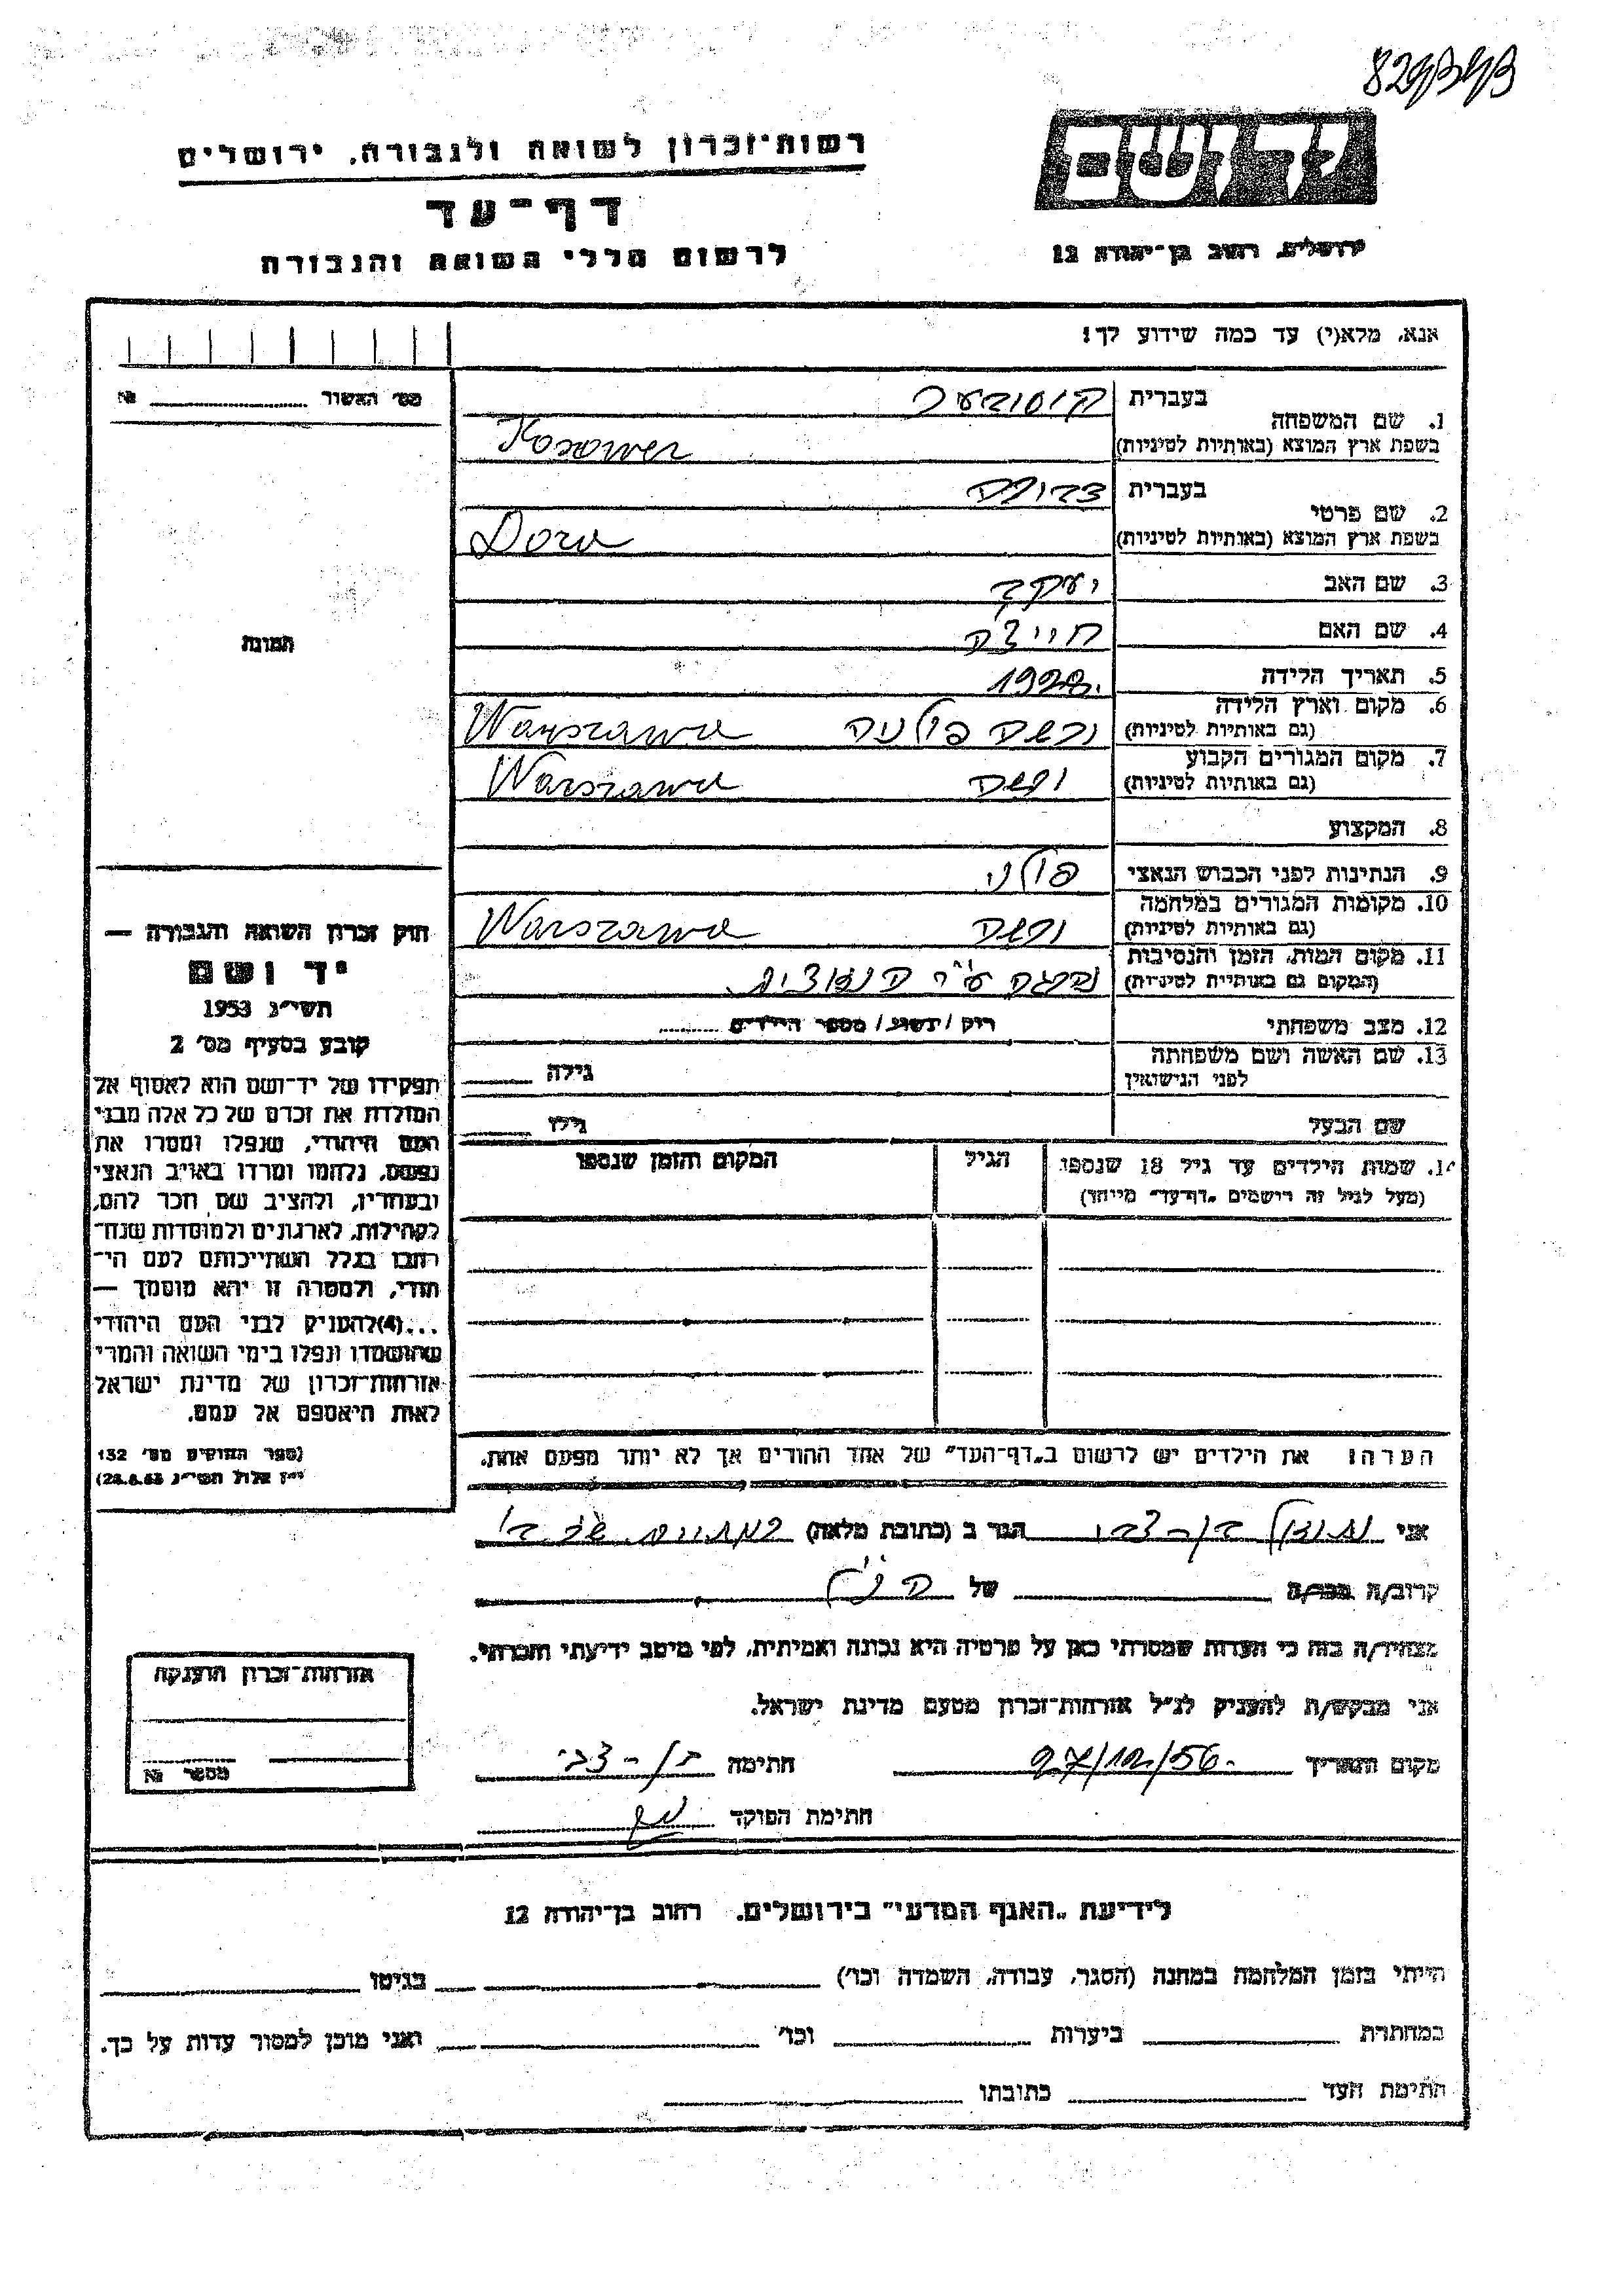 רשות־זכרון לשואה ולגבורה, ירושלים
דף־עד
לרשום חללי השואה והגבורה
יד ושם
ירושלים, רחוב בן־יהודה 12
אנא, מלא(י) עד כמה שידוע לך!
מס׳ האשור №
1. שם המשפחה
בעברית קוסובער
בשפת ארץ המוצא (באותיות לטיניות) Kosower
2. שם פרטי
בעברית
בשפת ארץ המוצא (באותיות לטיניות) Dora
3. שם האב יעקב
4. שם האם
5. תאריך הלידה
6. מקום וארץ הלידה (גם באותיות לטיניות) ורשה פולניה Warszawa
7. מקום המגורים הקבוע (גם באותיות לטיניות) ורשה Warszawa
8. המקצוע
9. הנתינות לפני הכבוש הנאצי פולני
10. מקומות המגורים במלחמה (גם באותיות לטיניות) ורשה Warszawa
11. מקום המות, הזמן והנסיבות (המקום גם באותיות לטיניות) ע״י הנאצים
12. מצב משפחתי רוק / נשוי / מספר הילדים
13. שם האשה ושם משפחתה לפני הנישואין גילה
שם הבעל גילו
14. שמות הילדים עד גיל 18 שנספו (מעל לגיל זה רושמים „דף־עד״ מיוחד) הגיל המקום והזמן שנספו
הערה: את הילדים יש לרשום ב„דף־העד״ של אחד ההורים אך לא יותר מפעם אחת.
תמונה
חוק זכרון השואה והגבורה —
יד ושם
תשי״ג 1953
קובע בסעיף מס׳ 2
תפקידו של יד־ושם הוא לאסוף אל
המולדת את זכרם של כל אלה מבני
העם היהודי, שנפלו ומסרו את
נפשם, נלחמו ומרדו באויב הנאצי
ובעוזריו, ולהציב שם וזכר להם,
לקהילות, לארגונים ולמוסדות שנח־
רבו בגלל השתייכותם לעם הי־
הודי, ולמטרה זו יהא מוסמך —
...(4) להעניק לבני העם היהודי
שהושמדו ונפלו בימי השואה והמרי
אזרחות־זכרון של מדינת ישראל
לאות היאספם אל עמם.
(ספר החוקים מס׳ 132
י״ז אלול תשי״ג 28.8.53)
אני בן־צבי הגר ב (כתובת מלאה)
קרוב/ה מכר/ה של הנ״ל
מצהיר/ה בזה כי העדות שמסרתי כאן על פרטיה היא נכונה ואמיתית, לפי מיטב ידיעתי והכרתי.
אני מבקש/ת להעניק לנ״ל אזרחות־זכרון מטעם מדינת ישראל.
מקום ותאריך 27/12/56 חתימה בן־צבי
חתימת הפוקד
אזרחות־זכרון הוענקה
מספר №
לידיעת „האגף המדעי״ בירושלים, רחוב בן־יהודה 12
הייתי בזמן המלחמה במחנה (הסגר, עבודה, השמדה וכו׳) בגיטו
במחתרת ביערות וכו׳ ואני מוכן למסור עדות על כך.
חתימת העד כתובתו